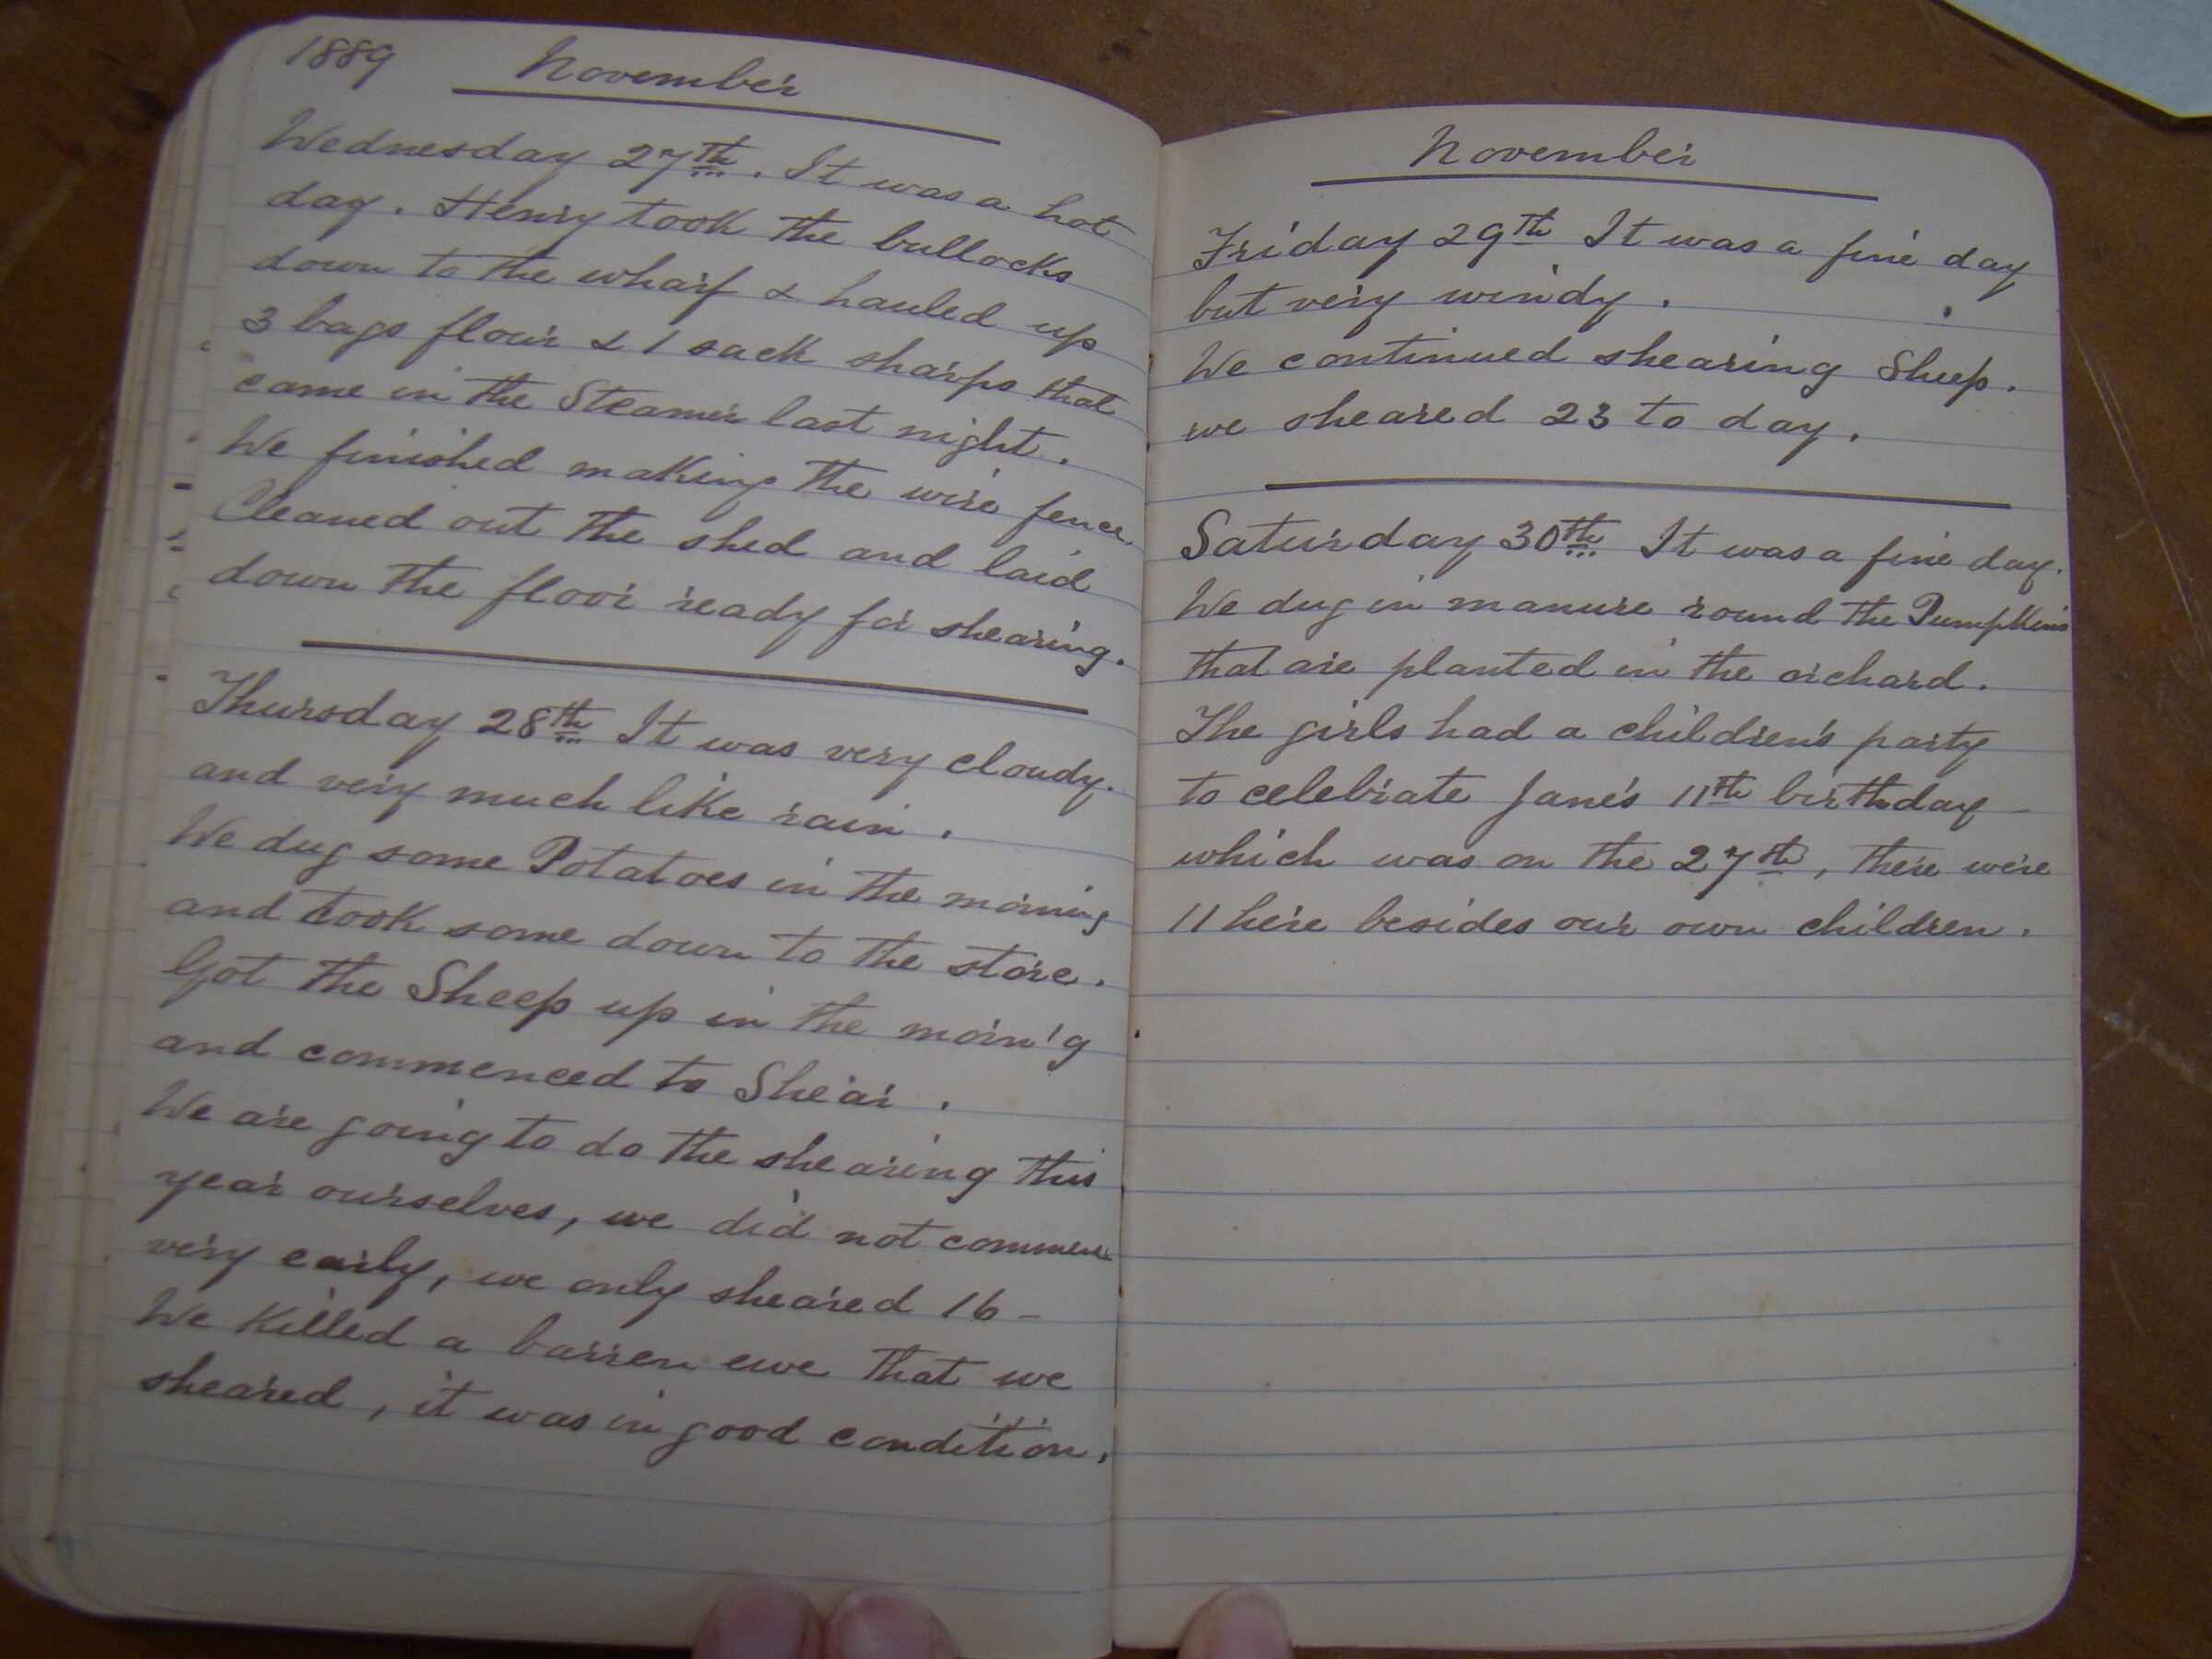 1889 November
Wednesday 27th. It was a hot
day. Henry took the bullocks
down to the wharf & hauled up
3 bags flour & 1 sack sharps that
came in the Steamer last night.
We finished making the wire fence.
Cleaned out the shed and laid
down the floor ready for shearing.
Thursday 28th It was very cloudy.
and very much like rain.
We dug some Potatoes in the morning
and took some down to the store.
Got the Sheep up in the morn'g
and commenced to Shear.
We are going to do the shearing this
year ourselves, we did not commence
very early, we only sheared 16 -
We killed a barren ewe that we
sheared, it was in good condition.
November
Friday 29th It was a fine day
but very windy.
We continued shearing Sheep.
we sheared 23 to day.
Saturday 30th It was a fine day.
We dug in manure round the Pumpkins
that are planted in the orchard.
The girls had a children's party
to celebrate Jane's 11th birthday -
which was on the 27th, there were
11 here besides our own children.